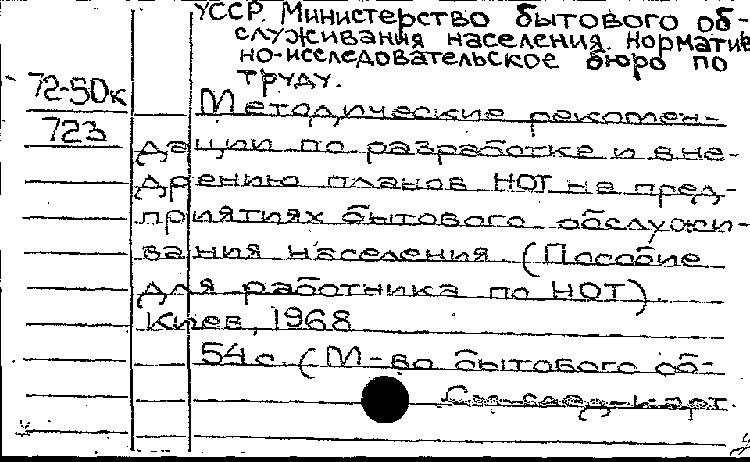 УССР. Министерство бытового об-
служивания населения. Норматив
но-исследовательское бюро по
труду.
72-50к
723
Методические рекомен-
дации по разработке и вне-
дрению планов НОТ на пред-
приятиях бытового обслужи-
вания населения. (Пособие
для работника по НОТ).
Киев, 1968
54 с. (М-во бытового об-
См. след. карт.